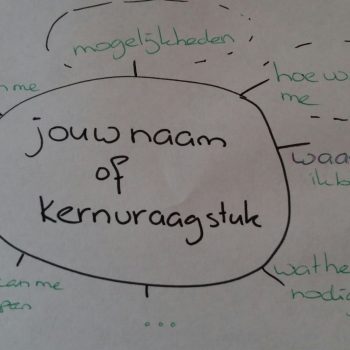 mogelijkheden
me
hoe w
me
jouw naam
of
kernvraagstuk
waa
ik b
wat he
nodig
an me
...